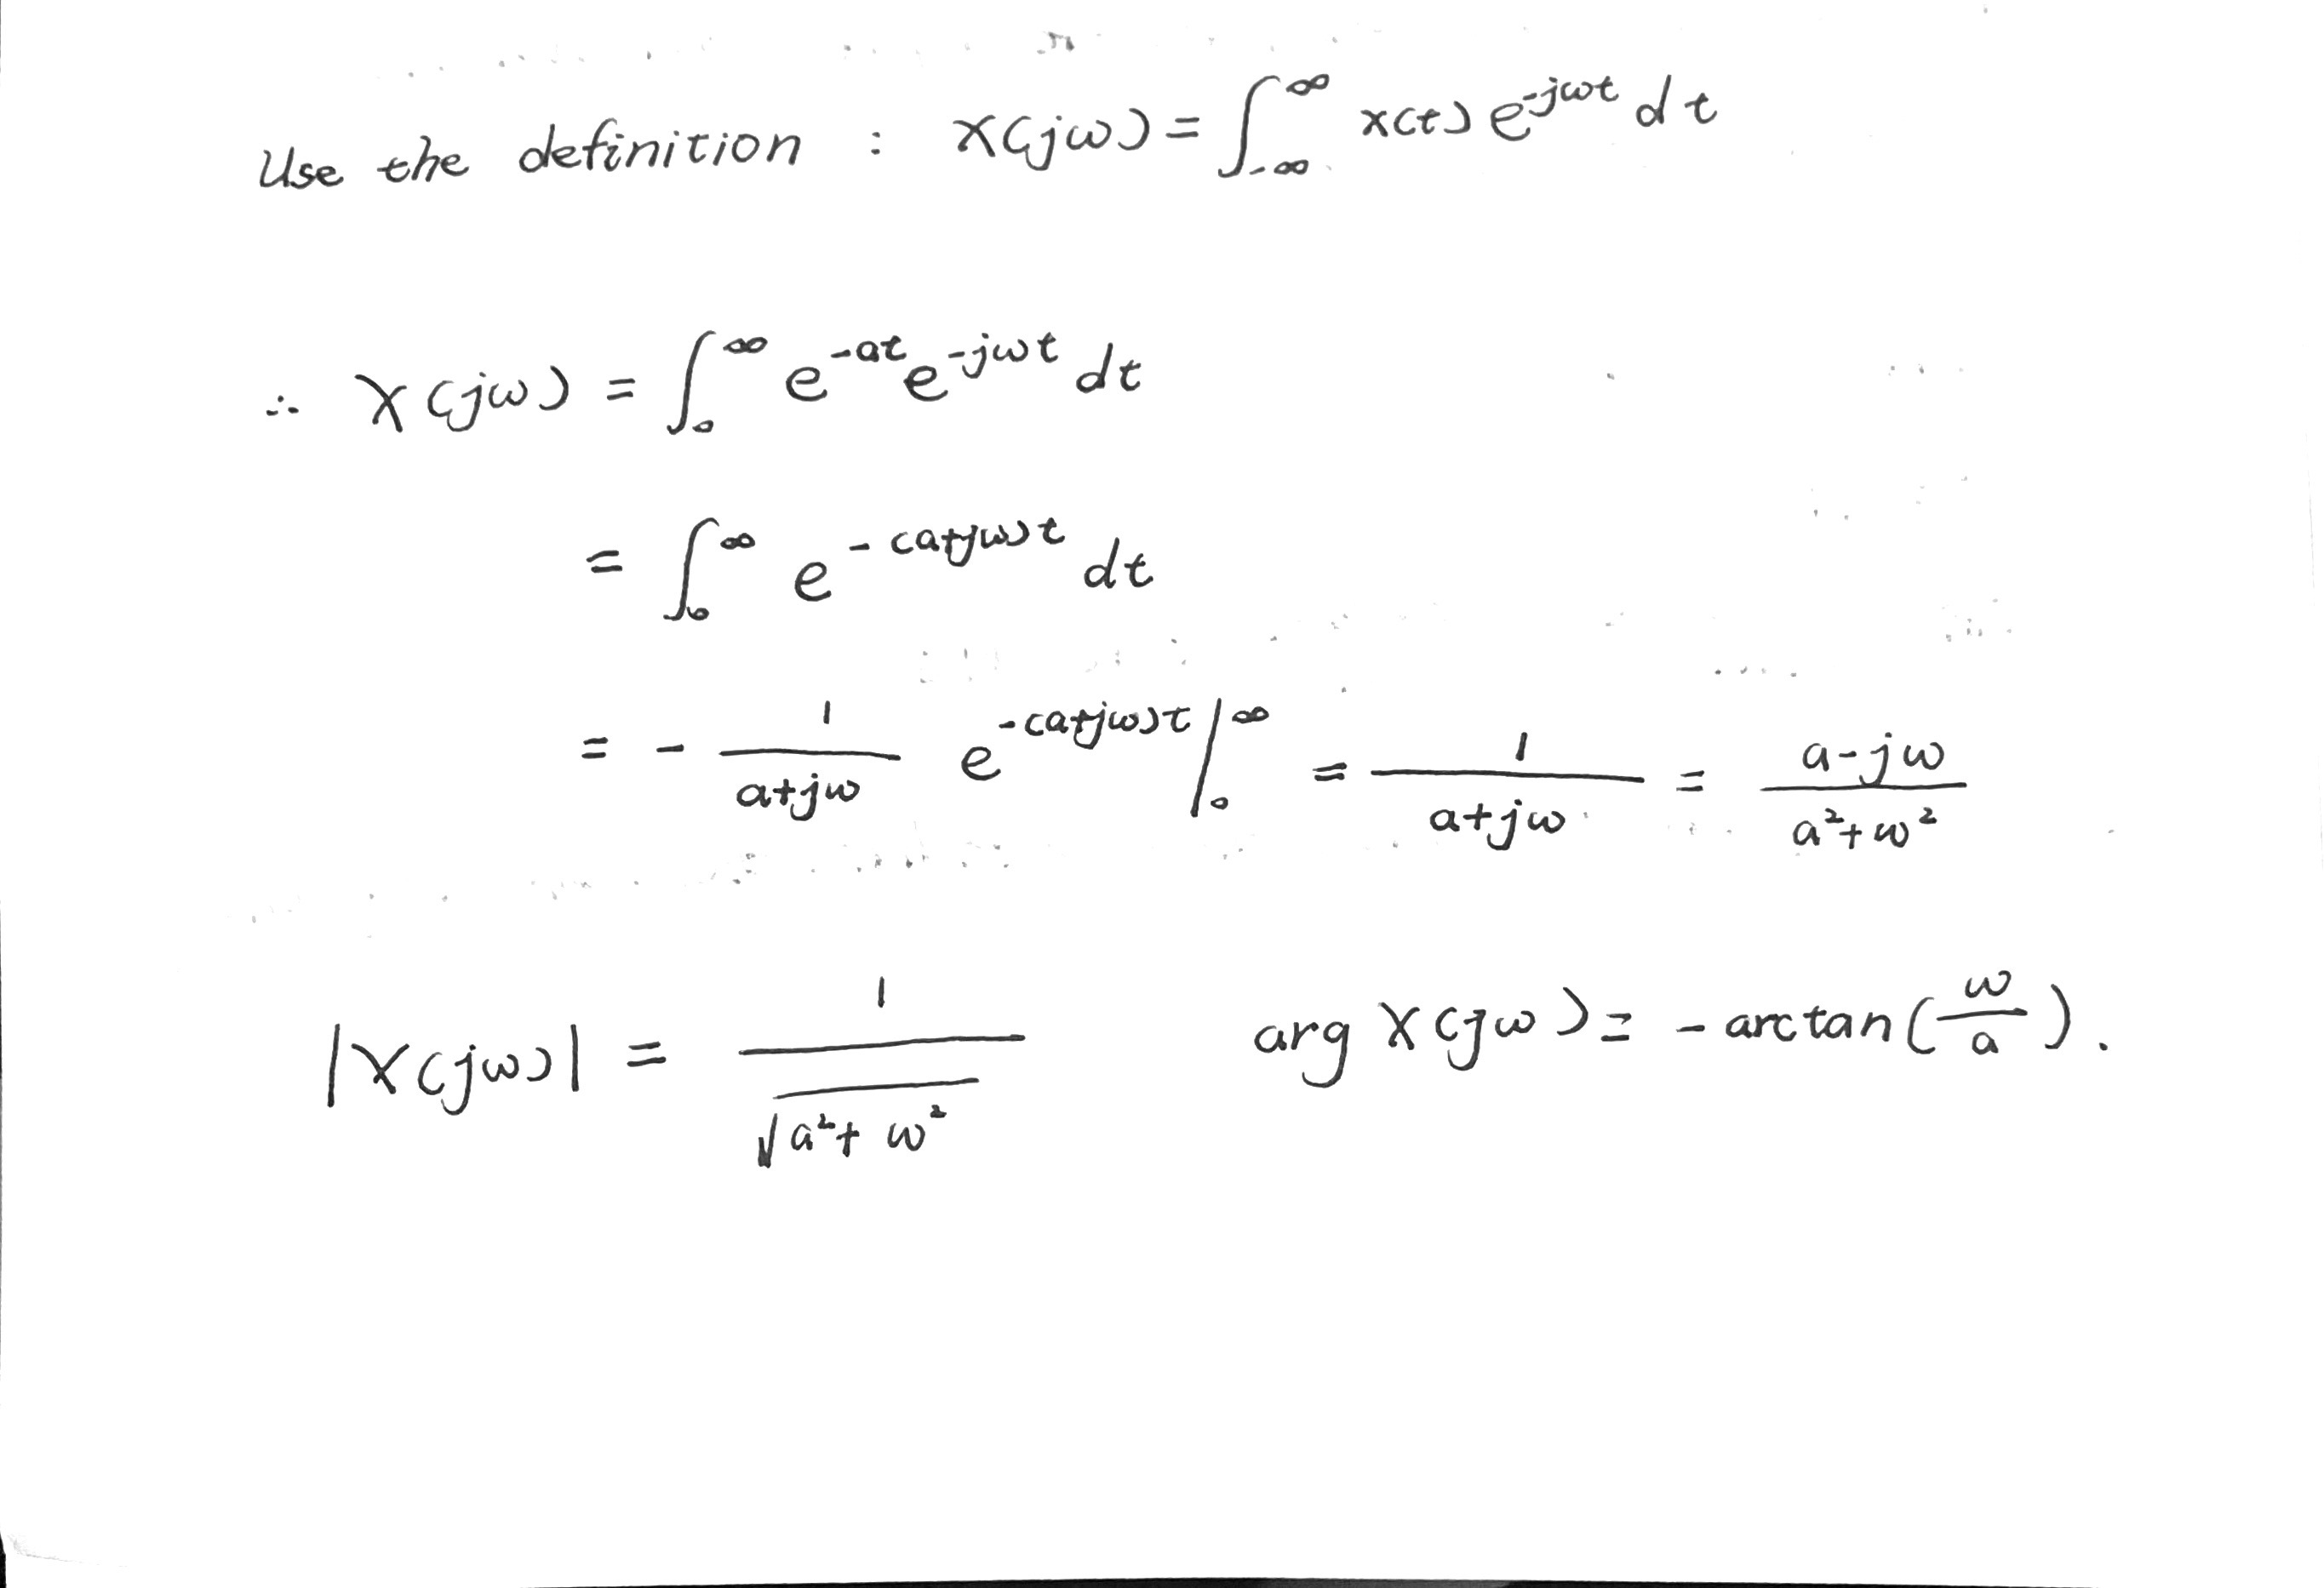 Use the definition : X(jω) = ∫_{-∞}^{∞} x(t) e^{-jωt} dt
∴ X(jω) = ∫_0^∞ e^{-at} e^{-jωt} dt
= ∫_0^∞ e^{-(a+jω)t} dt
= - \frac{1}{a+jω} e^{-(a+jω)t} |_0^∞ = \frac{1}{a+jω} = \frac{a-jω}{a²+ω²}
|X(jω)| = \frac{1}{\sqrt{a²+ω²}} arg X(jω) = -arctan(\frac{ω}{a}).